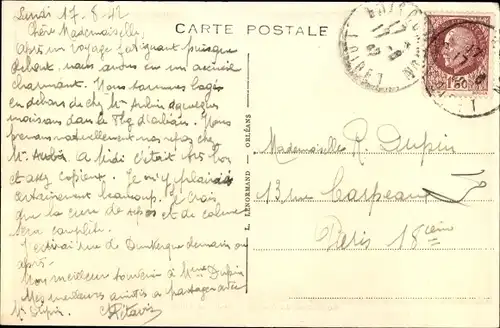 Lundi 17-8-42
Chère Mademoiselle,
Après un voyage fatigant puisque
debout, nous avons eu un accueil
charmant. Nous sommes logés
en dehors de chez Mr Aubin à quelques
maisons dans le Fbg d'
prenons naturellement nos repas chez
Mr Aubin. A midi c'était très bon
et assez copieux. Je m'y plairais
certainement beaucoup. Je crois
que la cure de repos et de calme
sera complète.
J'écrirai rue de Dunkerque demain ou
après.
Mon meilleur souvenir à Mme Dupin
Mes meilleures amitiés à partager avec
Mr Dupin.
CARTE POSTALE
L. LENORMAND - ORLÉANS
LOIRET
1F50
Mademoiselle R. Dupin
13 rue Carpeaux
Paris 18ième